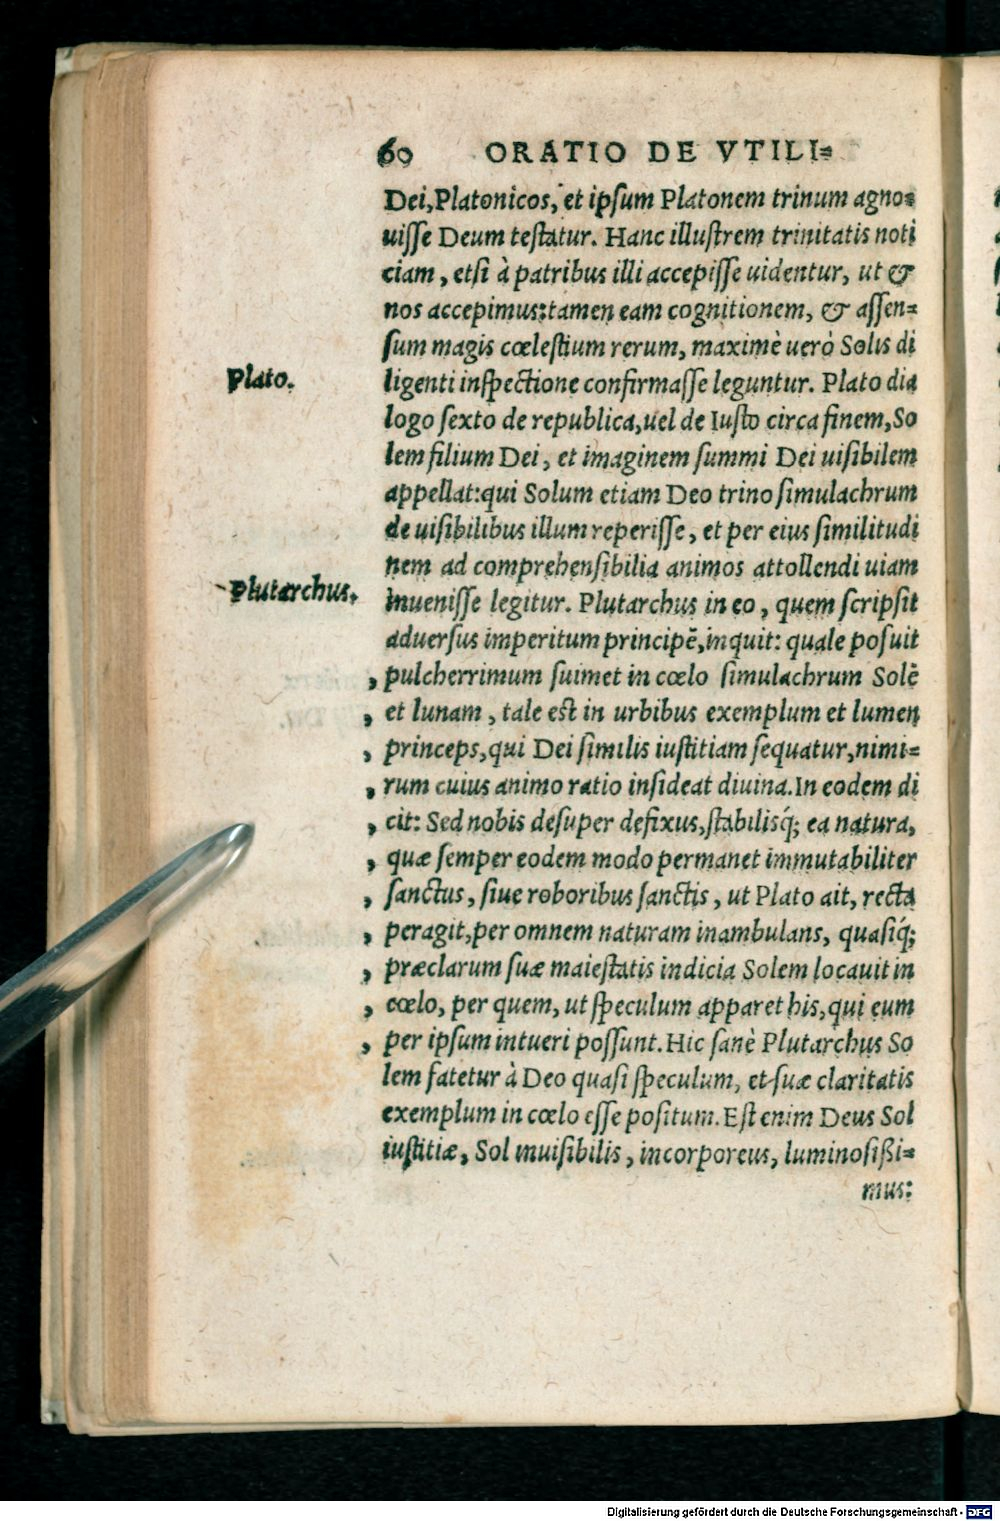 60 ORATIO DE VTILI=
Dei, Platonicos, et ipſum Platonem trinum agno=
uiſſe Deum teſtatur. Hanc illuſtrem trinitatis noti
ciam, etſi à patribus illi accepiſſe uidentur, ut &
nos accepimus: tamen eam cognitionem, & aſſen=
ſum magis cœleſtium rerum, maximè uerò Solis di
Plato.
ligenti inſpectione confirmaſſe leguntur. Plato dia
logo ſexto de republica, uel de Iuſto circa finem, So
lem filium Dei, et imaginem ſummi Dei uiſibilem
appellat: qui Solum etiam Deo trino ſimulachrum
de uiſibilibus illum reperiſſe, et per eius ſimilitudi
nem ad comprehenſibilia animos attollendi uiam
Plutarchus.
inueniſſe legitur. Plutarchus in eo, quem ſcripſit
aduerſus imperitum principẽ, inquit: quale poſuit
, pulcherrimum ſuimet in cœlo ſimulachrum Solẽ
, et lunam, tale eſt in urbibus exemplum et lumen
, princeps, qui Dei ſimilis iuſtitiam ſequatur, nimi=
, rum cuius animo ratio inſideat diuina. In eodem di
, cit: Sed nobis deſuper defixus, ſtabilisq́; ea natura,
, quæ ſemper eodem modo permanet immutabiliter
, ſanctus, ſiue roboribus ſanctis, ut Plato ait, recta
, peragit, per omnem naturam inambulans, quaſiq́;
, præclarum ſuæ maieſtatis indicia Solem locauit in
, cœlo, per quem, ut ſpeculum apparet his, qui eum
, per ipſum intueri poſſunt. Hic ſanè Plutarchus So
lem fatetur à Deo quaſi ſpeculum, et ſuæ claritatis
exemplum in cœlo eſſe poſitum. Eſt enim Deus Sol
iuſtitiæ, Sol inuiſibilis, incorporeus, luminoſißi=
mus:
Digitalisierung gefördert durch die Deutsche Forschungsgemeinschaft - DFG